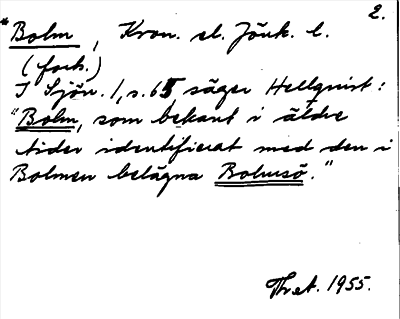 2.
*Bolm, Kron. el. Jönk. l.
(fork.)
I Sjön. 1, s. 65 säger Hellquist:
"Bolm, som bekant i äldre
tider identifierat med den i
Bolmen belägna Bolmsö."
1955.